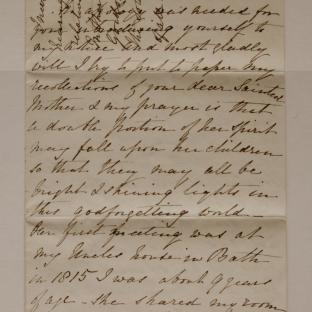 apology was needed for
your introducing yourself to
my notice and most gladly
will I try to put to paper my
recollections of your dear Sainted
Mother & my prayer is that
a double Portion of her Spirit
may fall upon her children
so that they may all be
bright & shining lights in
this godforgetting world—
Our first meeting was at
my Uncles house in Bath
in 1815 I was about 9 years
of age - She shared my room